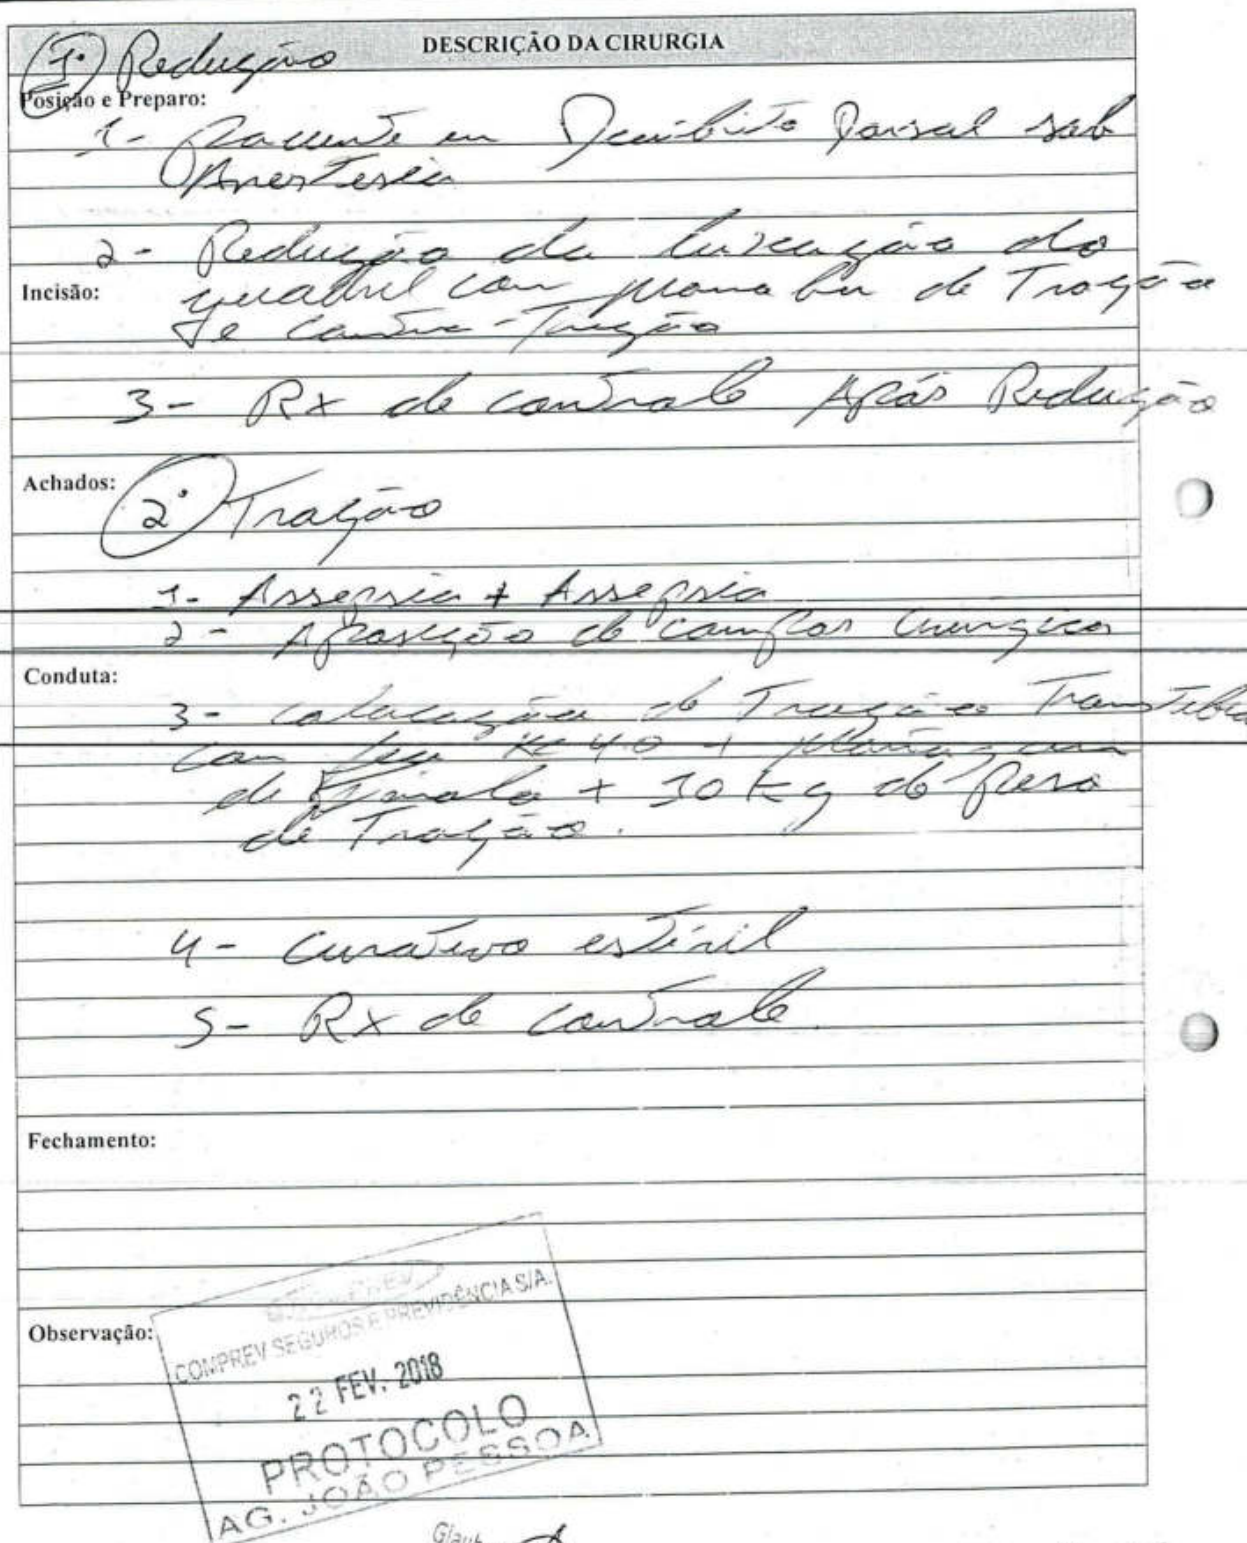 DESCRIÇÃO DA CIRURGIA
1º Redução
Posição e Preparo:
1- Paciente em Decúbito Dorsal sob
Anestesia
2- Redução da luxação do
Incisão:
quadril com manobra de Tração
e contra-Tração
3- Rx de controle Após Redução
Achados:
2º Tração
1- Assepsia + Assepsia
2- Aposição de campos cirúrgicos
Conduta:
3- colocação de Tração Transtibial
com fio K 40 +
de + 10 kg de peso
de Tração.
4- Curativo estéril
5- Rx de controle.
Fechamento:
Observação:
COMPREV SEGUROS E PREVIDÊNCIA S/A.
22 FEV. 2018
PROTOCOLO
AG. JOÃO PESSOA